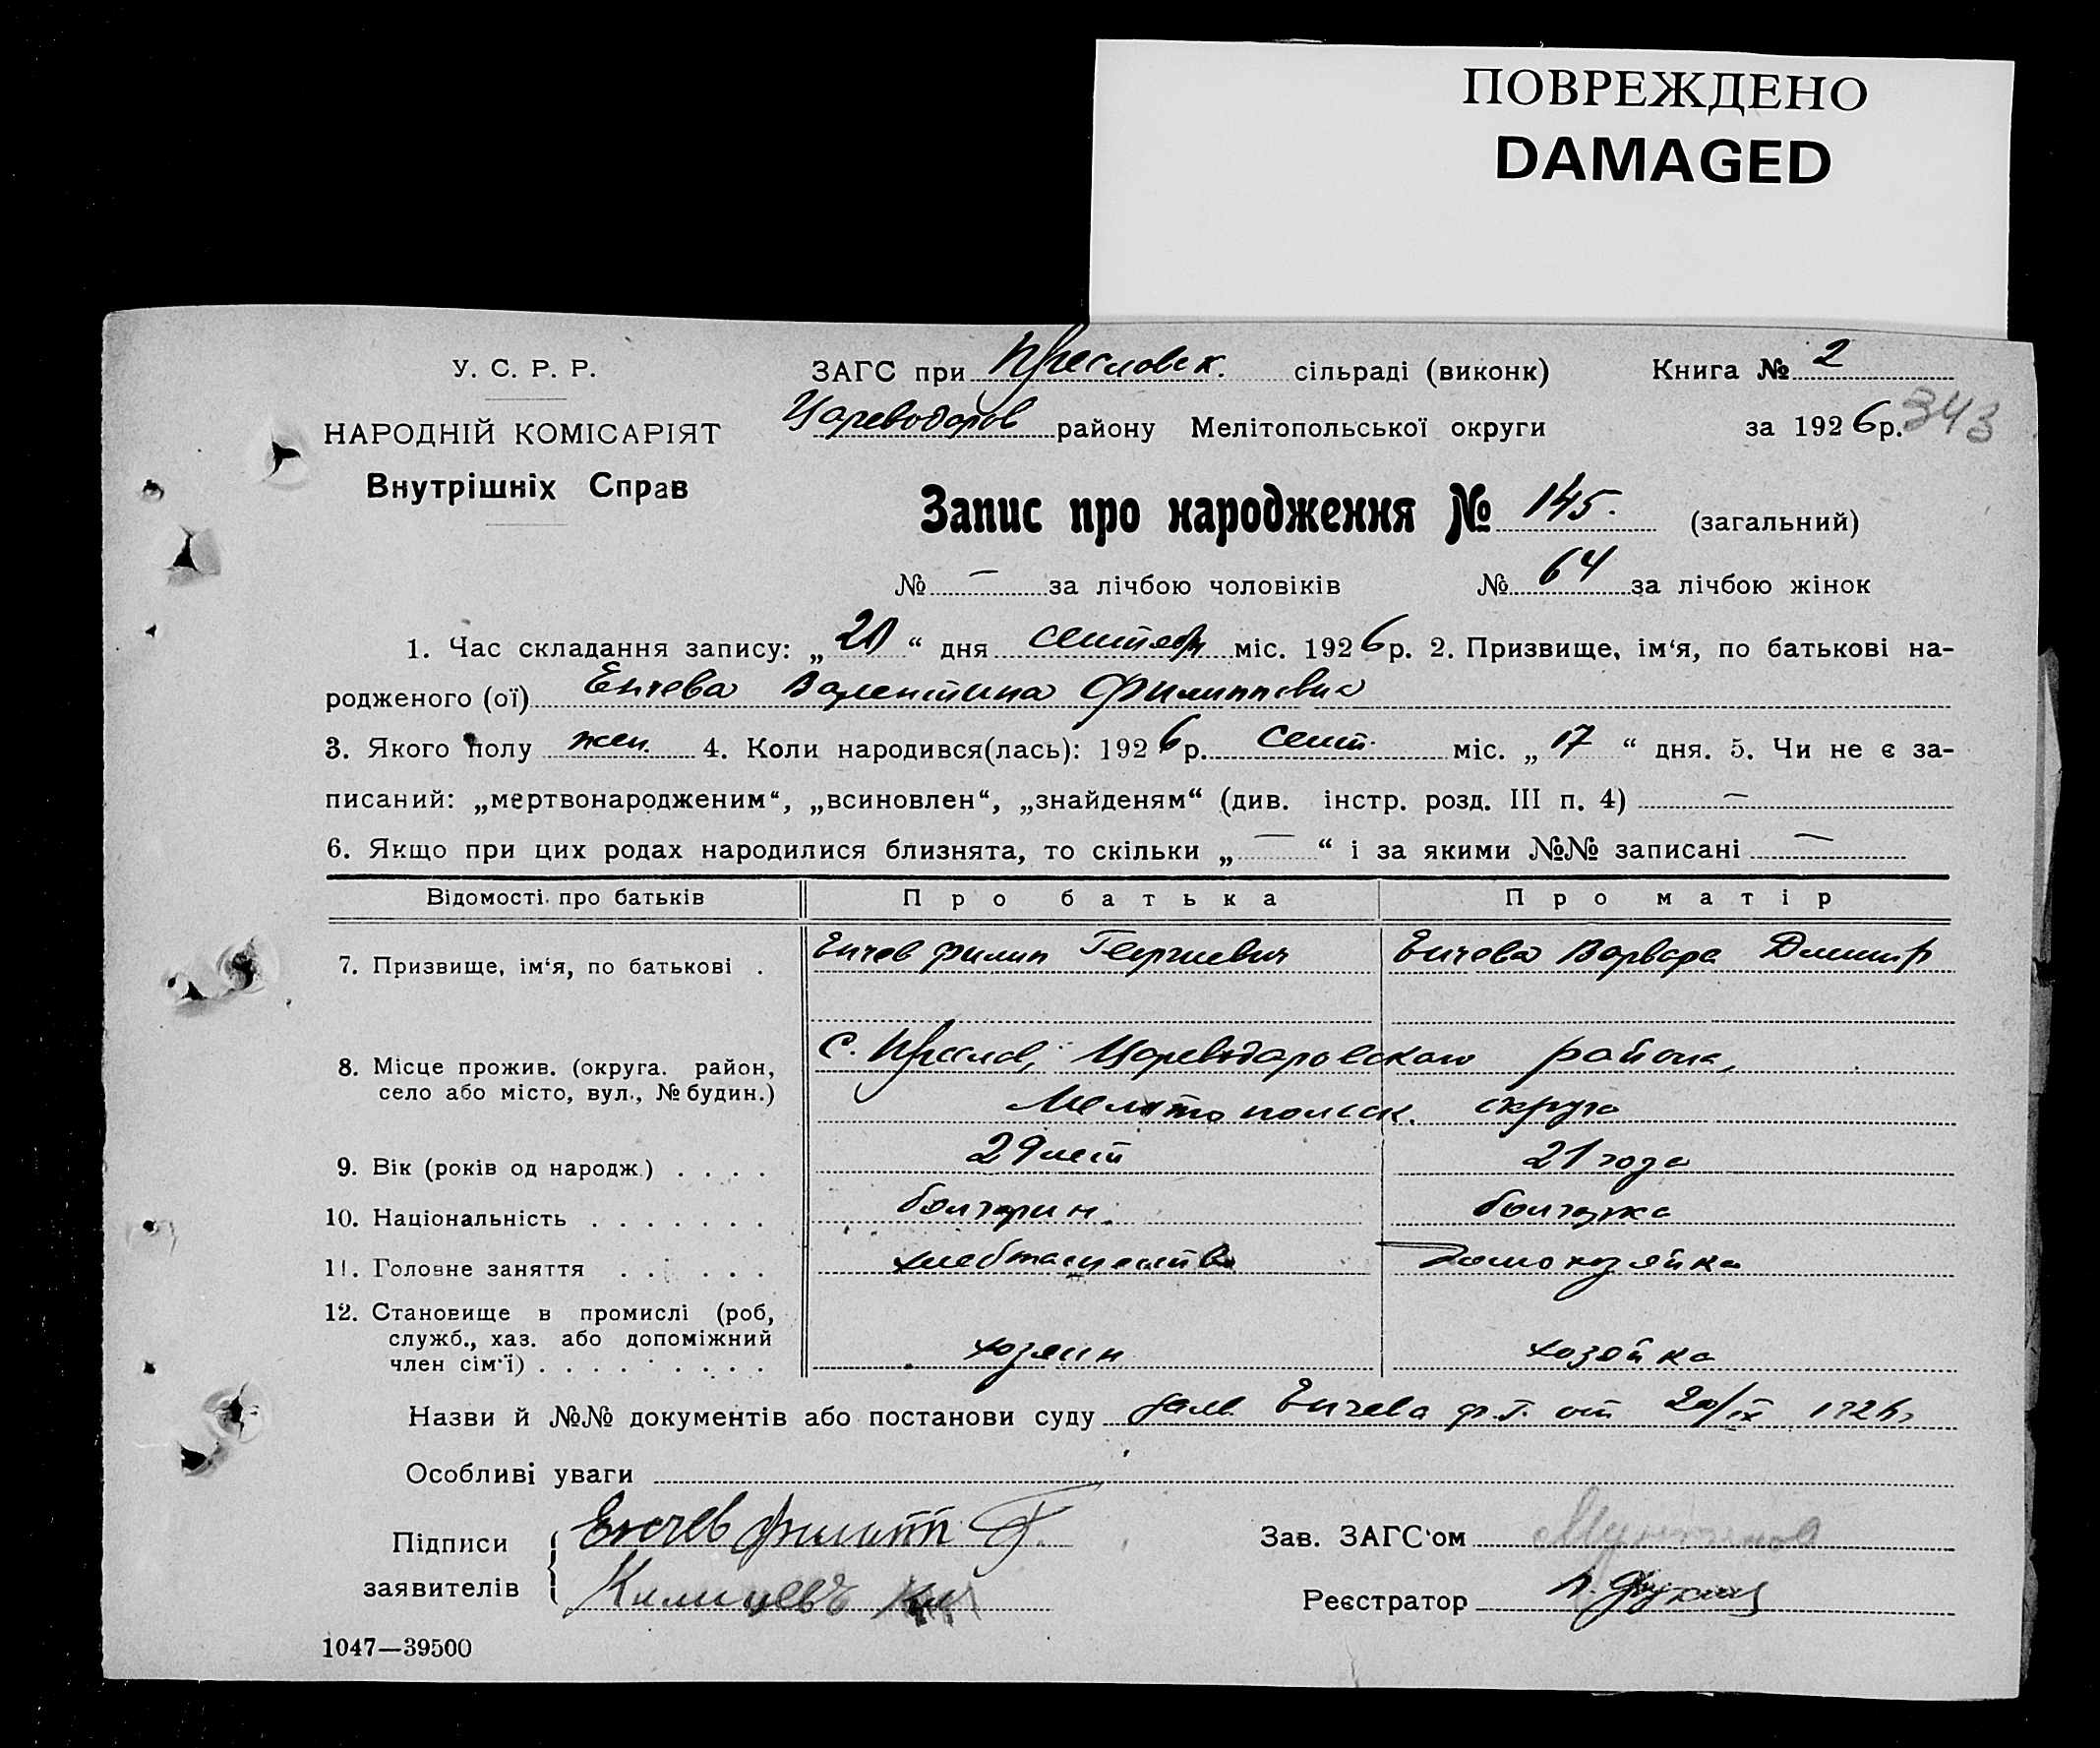 ПОВРЕЖДЕНО
DAMAGED
У. С. Р. Р.
НАРОДНІЙ КОМІСАРІЯТ
Внутрішніх Справ
ЗАГС при Преславск. сільраді (виконк) Книга № 2
Цареводаров району Мелітопольської округи за 1926р. 343
Запис про народження № 145. (загальний)
№ — за лічбою чоловіків № 64 за лічбою жінок
1. Час складання запису: „20“ дня сентября міс. 1926р. 2. Призвище, ім‘я, по батькові на-
родженого (ої) Енчева Валентина Филипповна
3. Якого полу жен. 4. Коли народився(лась): 1926р. сент. міс. „17“ дня. 5. Чи не є за-
писаний: „мертвонародженим“, „всиновлен“, „знайденям“ (див. інстр. розд. III п. 4) —
6. Якщо при цих родах народилися близнята, то скільки „—“ і за якими №№ записані —
Відомості про батьків Про батька Про матір
7. Призвище, ім‘я, по батькові . Енчев Филип Георгиевич Енчева Варвара Дмитр
8. Місце прожив. (округа. район, С. Преслав, Цареводаровского района,
село або місто, вул., № будин.) Мелитопольск. округа
9. Вік (років од народж.) . . . . 29 лет 21 года
10. Національність . . . . . . . болгарин. болгарка
11. Головне заняття . . . . . . хлебопашество домохозяйка
12. Становище в промислі (роб,
служб., хаз. або допоміжний
член сім‘ї) . . . . . . . . . хозяин хозяйка
Назви й №№ документів або постанови суду заяв. Енчева Ф. Г. от 20/IX 1926г
Особливі уваги
Підписи Енчев Филипп Г. Зав. ЗАГС‘ом
заявителів Реєстратор
1047—39500